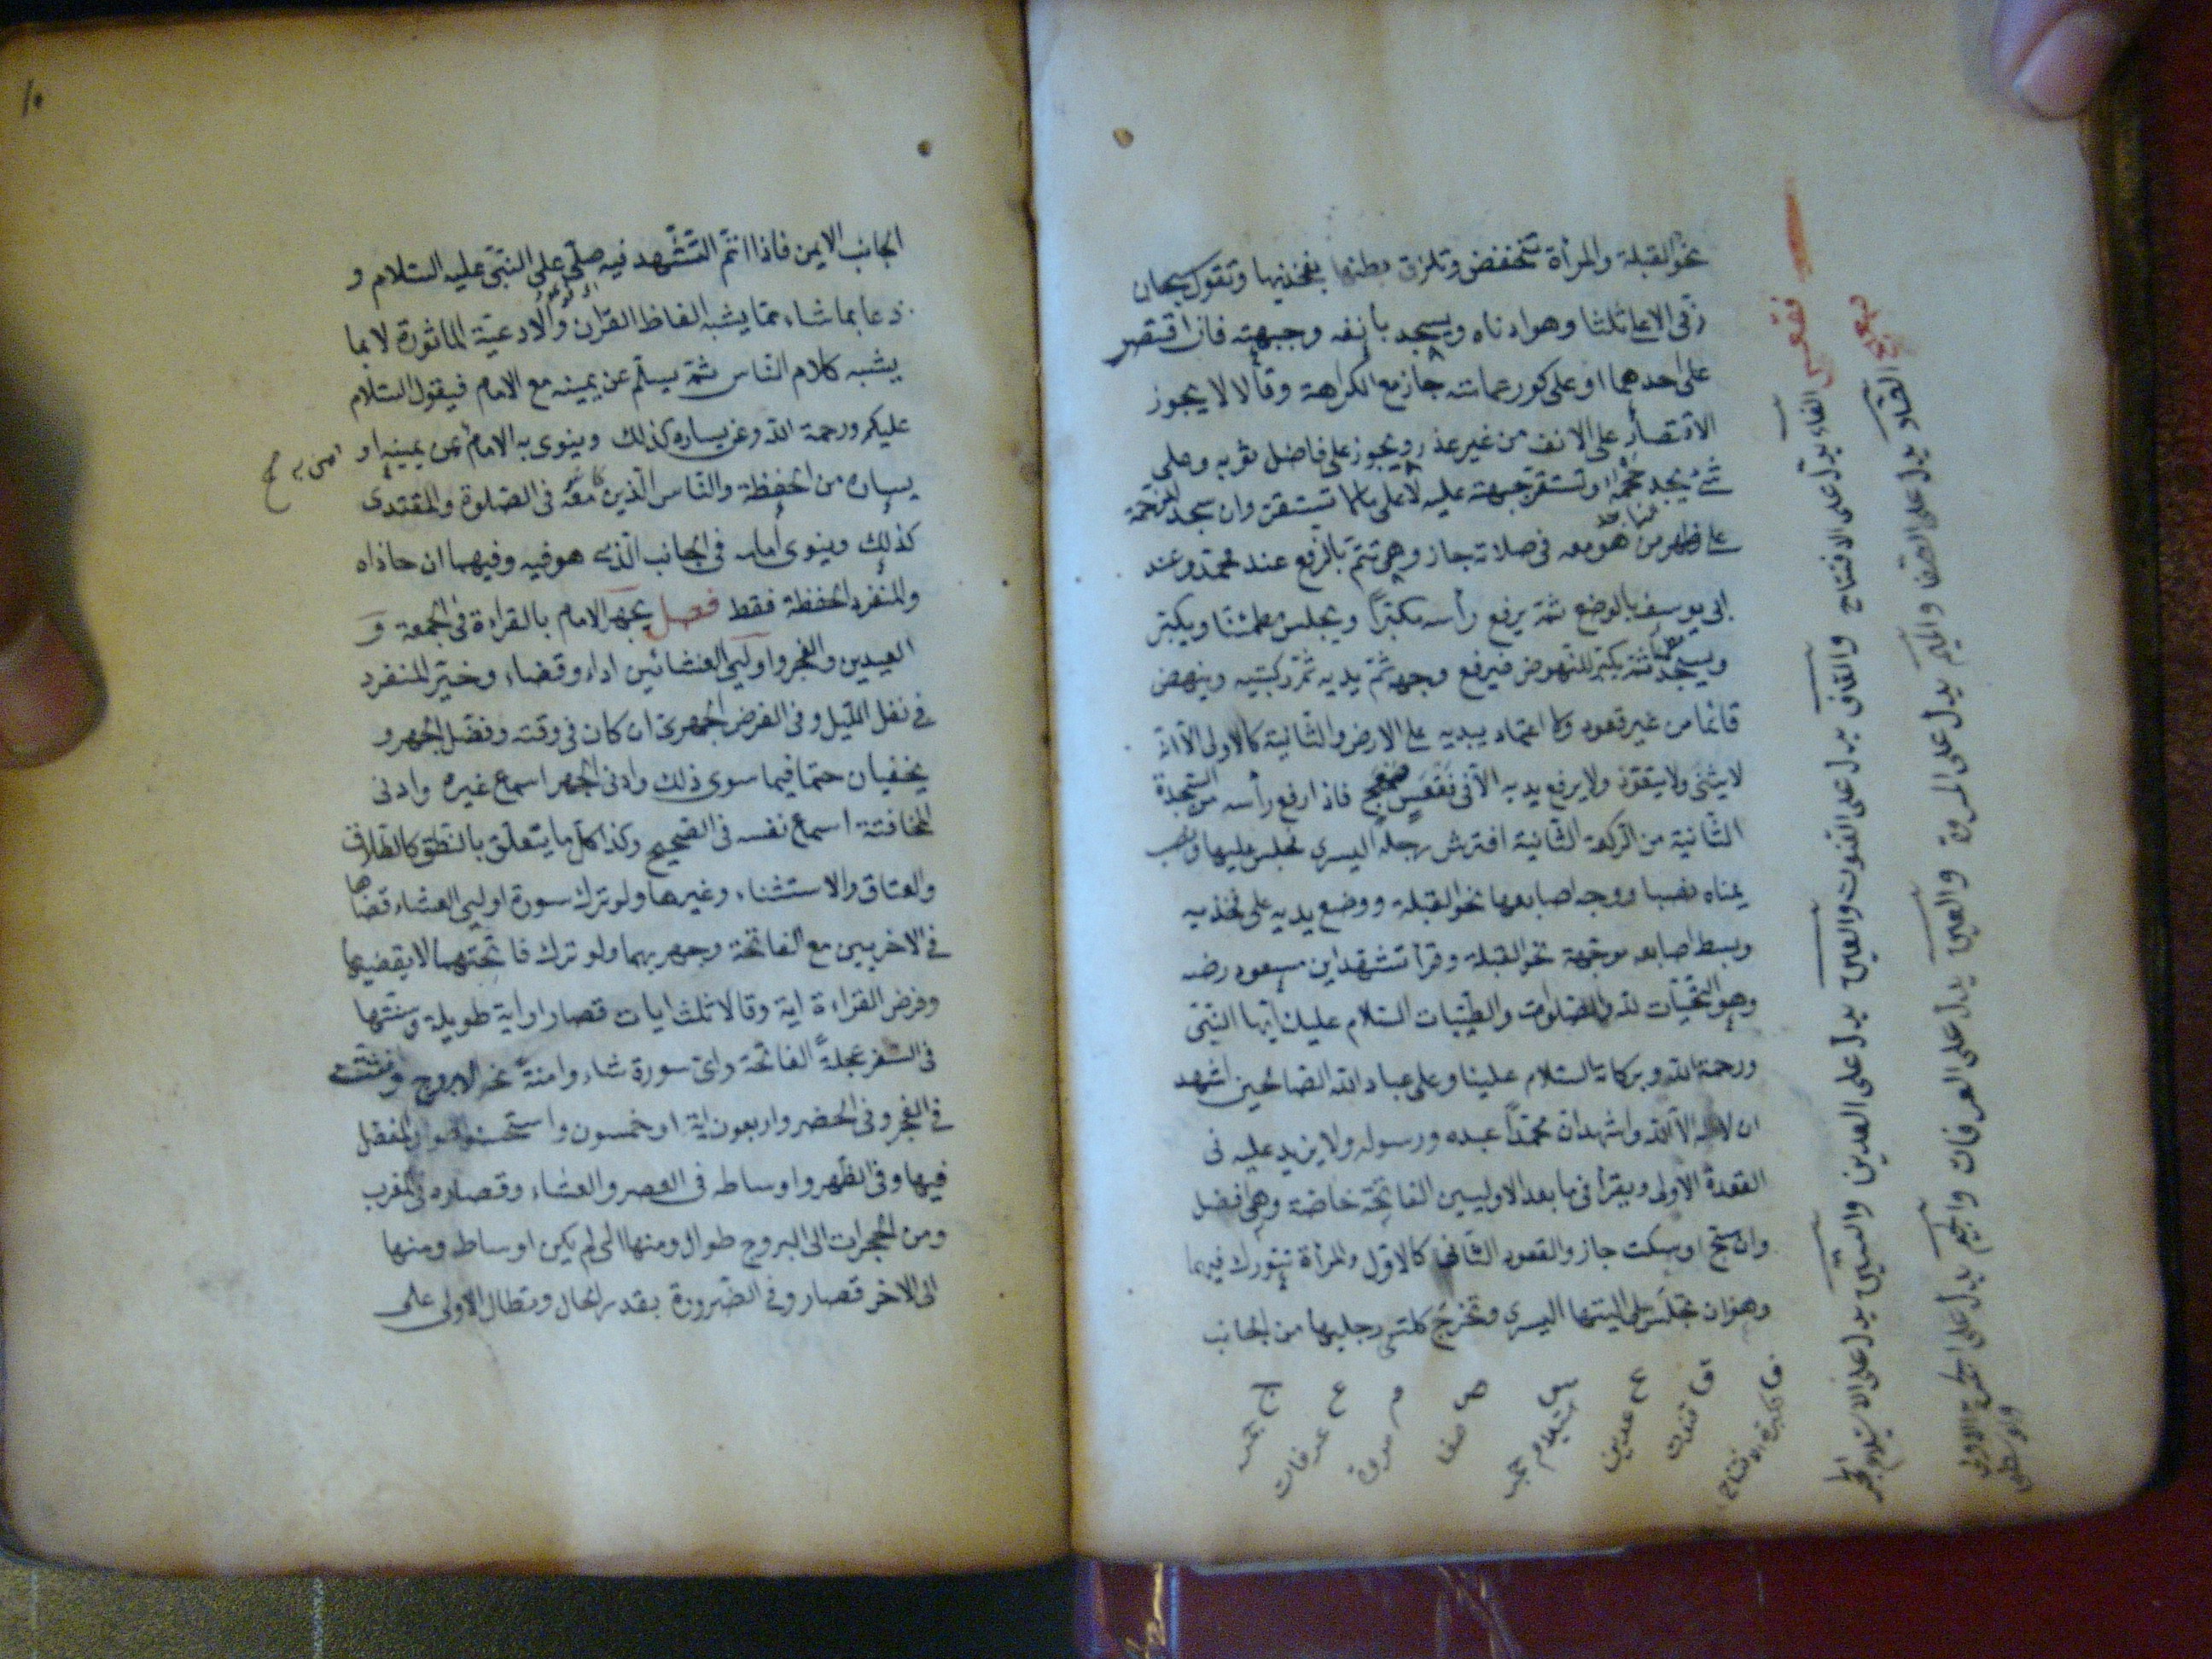 نحو القبلة والمرأة تنخفض وتلزق بطنها بفخذيها وتقول سبحان
ربي الاعلى ثلثا وهو ادناه ويسجد بأنفه وجبهته فان اقتصر
على احدهما او على كور عمامته جاز مع الكراهة وقالا لا يجوز
الاقتصار على الانف من غير عذر ويجوز على فاضل ثوبه وعلى
شئ يجد حجمه وتستقر جبهته عليه لا على ما لا تستقر وان سجد للزحمة
على ظهر من هو معه فى صلاته جاز وهى تتم بالرفع عند محمد وعند
ابى يوسف بالوضع ثمة يرفع رأسه مكبرا ويجلس مطمئنا ويكبر
ويسجد ثمة يكبر للنهوض فيرفع وجهه ثم يديه ثم ركبتيه وينهض
قائما من غير قعود ولا اعتماد بيديه على الارض والثانية كالاولى الا انه
لا يثنى ولا يتعوذ ولا يرفع يديه الا فى فقعس صمعج فاذا رفع رأسه من السجدة
الثانية من الركعة الثانية افترش رجله اليسرى فجلس عليها ونصب
يمناه نصبا ووجه اصابعها نحو القبلة ووضع يديه على فخذيه
وبسط اصابعه موجهة نحو القبلة وقرأ تشهد ابن مسعود رضه
وهو التحيات لله والصلوات والطيبات السلام عليك ايها النبى
ورحمة الله وبركاته السلام علينا وعلى عباد الله الصالحين اشهد
ان لا اله الا الله واشهد ان محمدا عبده ورسوله ولا يزيد عليه فى
القعدة الاولى ويقرأ فى ما بعد الاوليين الفاتحة خاصة وهى افضل
وان سبح او سكت جاز والقعود الثانى كالاول والمرأة تتورك فيهما
وهو ان تجلس على اليتها اليسرى وتخرج كلتى رجليها من الجانب
فقعس
الفاء يدل على الافتتاح والقاف يدل على القنوت والعين يدل على العيدين والسين يدل على الاستلام الحجر
صمعج
الصاد يدل على الصفا والميم يدل على المروة والعين يدل على العرفات والجيم يدل على الجمرة الاولى
والوسطى
ف تكبيرة الافتتاح
ق قنوت
ع عيدين
س استيلام حجر
ص صفا
م مروة
ع عرفات
ج جمرة
١٠
الجانب الايمن فاذا اتم التشهد فيه صلى على النبى عليه السلام و
دعا بما شاء مما يشبه الفاظ القرأن والادعية المأثورة لا بما
يشبه كلام الناس ثمة يسلم عن يمينه مع الامام فيقول السلام
عليكم ورحمة الله وعن يساره كذلك وينوى به الامام من عن يمينه او
يساره من الحفظة والناس الذين معه فى الصلوة والمقتدى
كذلك وينوى امامه فى الجانب الذى هو فيه وفيهما ان حاذاه
والمنفرد الحفظة فقط فصل يجهر الامام بالقراءة فى الجمعة و
العيدين والفجر واوليى العشائين اداء وقضاء وخير المنفرد
فى نفل الليل وفى الفرض الجهرى ان كان فى وقته وفضل الجهر و
يخفيان حتما فيما سوى ذلك وادنى الجهر اسماع غيره وادنى
المخافتة اسماع نفسه فى الصحيح وكذا كل ما يتعلق بالنطق كالطلاق
والعتاق والاستثناء وغيرها ولو ترك سورة اوليى العشاء قضاها
فى الاخريين مع الفاتحة وجهر بهما ولو ترك فاتحتهما لا يقضيها
وفرض القراءة اية وقالا ثلث ايات قصار او اية طويلة وسنتها
فى السفر عجلة الفاتحة واى سورة شاء وامنة نحو البروج وانشقت
فى الفجر وفى الحضر اربعون اية او خمسون واستحسنوا طوال المفصل
فيها وفى الظهر واوساطه فى العصر والعشاء وقصاره فى المغرب
ومن الحجرات الى البروج طوال ومنها الى لم يكن اوساط ومنها
الى الاخر قصار وفى الضرورة بقدر الحال وتطال الاولى على